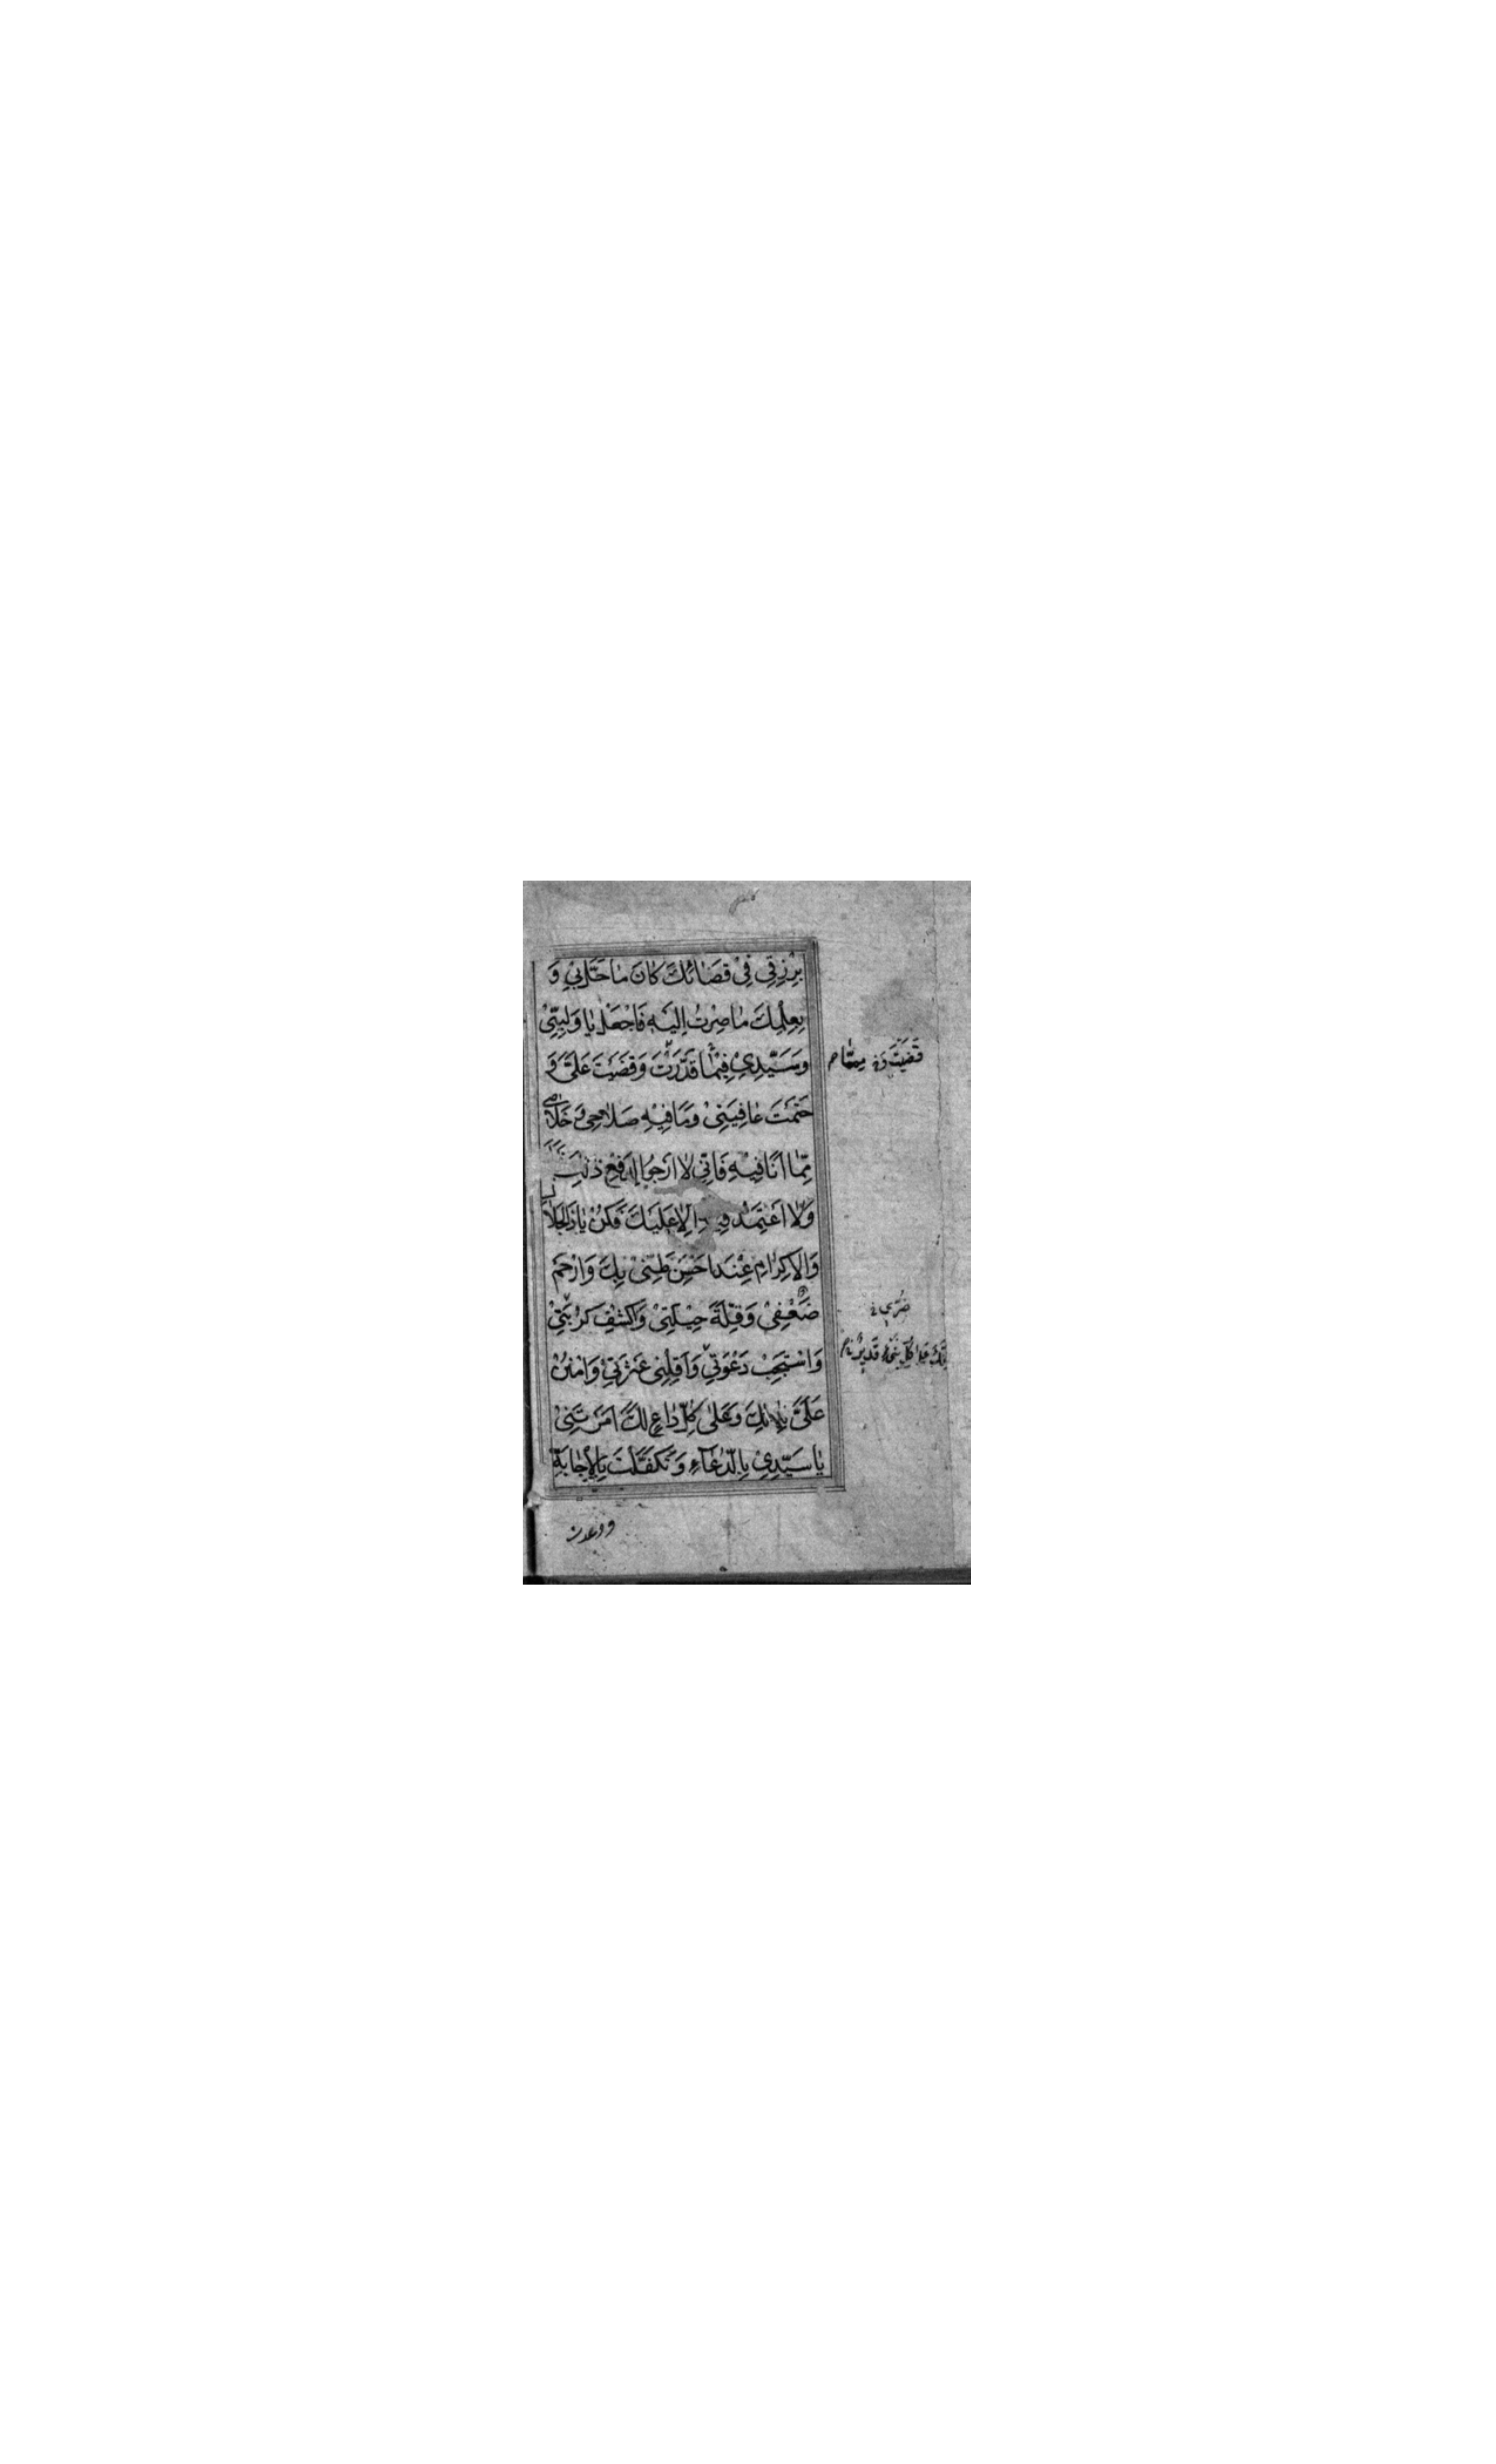 بِرِزْقِي فِي قَضَائِكَ كَانَ مَا حَلَّ بِي وَ
بِعِلْمِكَ مَا صِرْتُ اِلَيْهِ فَاجْعَلْ يَا وَلِيِّي
وَسَيِّدِي فِيمَا قَدَّرْتَ وَقَضَيْتَ عَلَيَّ وَ
حَتَمْتَ عَافِيَتِي وَمَا فِيهِ صَلَاحِي وَخَلَاصِي
مِمَّا اَنَا فِيهِ فَاِنِّي لَا اَرْجُو لِدَفْعِ ذٰلِكَ
وَلَا اَعْتَمِدُ فِيهِ اِلَّا عَلَيْكَ فَكُنْ يَا ذَا الْجَلَالِ
وَالْاِكْرَامِ عِنْدَ اَحْسَنِ ظَنِّي بِكَ وَارْحَمْ
ضَعْفِي وَقِلَّةَ حِيلَتِي وَاكْشِفْ كُرْبَتِي
وَاسْتَجِبْ دَعْوَتِي وَاَقِلْنِي عَثْرَتِي وَامْنُنْ
عَلَيَّ بِذٰلِكَ وَعَلَى كُلِّ دَاعٍ لَكَ اَمَرْتَنِي
يَا سَيِّدِي بِالدُّعَاءِ وَتَكَفَّلْتَ بِالْاِجَابَةِ
ووعدت
قَضَيْتَ
ضُرِّي
كُلِّ شَيْءٍ قَدِيرٌ